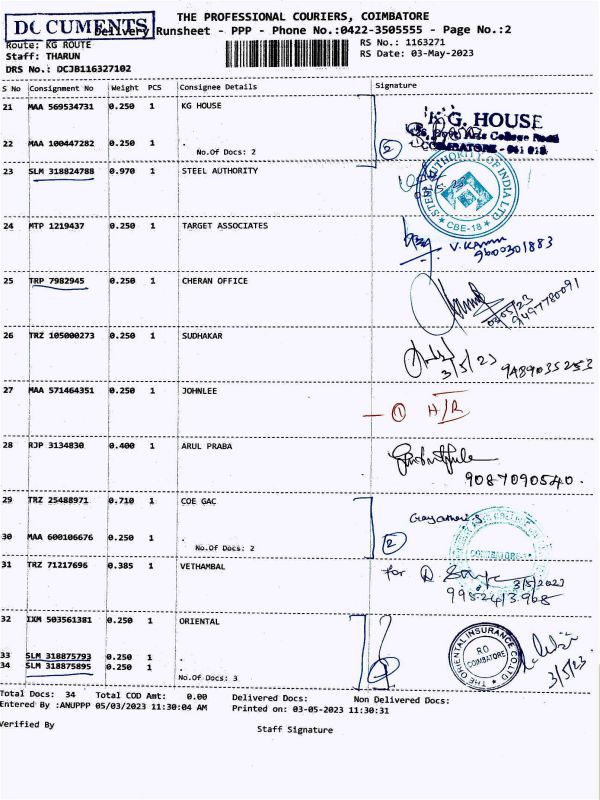 DOCUMENTS
THE PROFESSIONAL COURIERS, COIMBATORE
Delivery Runsheet - PPP - Phone No.:0422-3505555 - Page No.:2
Route: KG ROUTE
RS No.: 1163271
Staff: THARUN
RS Date: 03-May-2023
DRS No.: DCJB116327102
S No Consignment No Weight PCS Consignee Details Signature
21 MAA 569534731 0.250 1 KG HOUSE
K.G. HOUSE
College Road
COIMBATORE - 641 018
22 MAA 100447282 0.250 1 .
No.Of Docs: 2
2
23 SLM 318824788 0.970 1 STEEL AUTHORITY
STEEL AUTHORITY OF INDIA LTD
CBE-18
24 MTP 1219437 0.250 1 TARGET ASSOCIATES
9600301883
25 TRP 7982945 0.250 1 CHERAN OFFICE
03/05/23
9497780091
26 TRZ 105000273 0.250 1 SUDHAKAR
3/5/23 9489035253
27 MAA 571464351 0.250 1 JOHNLEE
- 1 H/R
28 RJP 3134830 0.400 1 ARUL PRABA
9087090540.
29 TRZ 25488971 0.710 1 COE GAC
Gayathri.S
COIMBATORE
30 MAA 600106676 0.250 1 .
No.Of Docs: 2
2
31 TRZ 71217696 0.385 1 VETHAMBAL
for
3/5/2023
32 IXM 503561381 0.250 1 ORIENTAL
THE ORIENTAL INSURANCE CO.LTD
R.O
COIMBATORE
3/5/23.
33 SLM 318875793 0.250 1 .
34 SLM 318875895 0.250 1 .
No.Of Docs: 3
Total Docs: 34 Total COD Amt: 0.00 Delivered Docs: Non Delivered Docs:
Entered By :ANUPPP 05/03/2023 11:30:04 AM Printed on: 03-05-2023 11:30:31
Verified By
Staff Signature